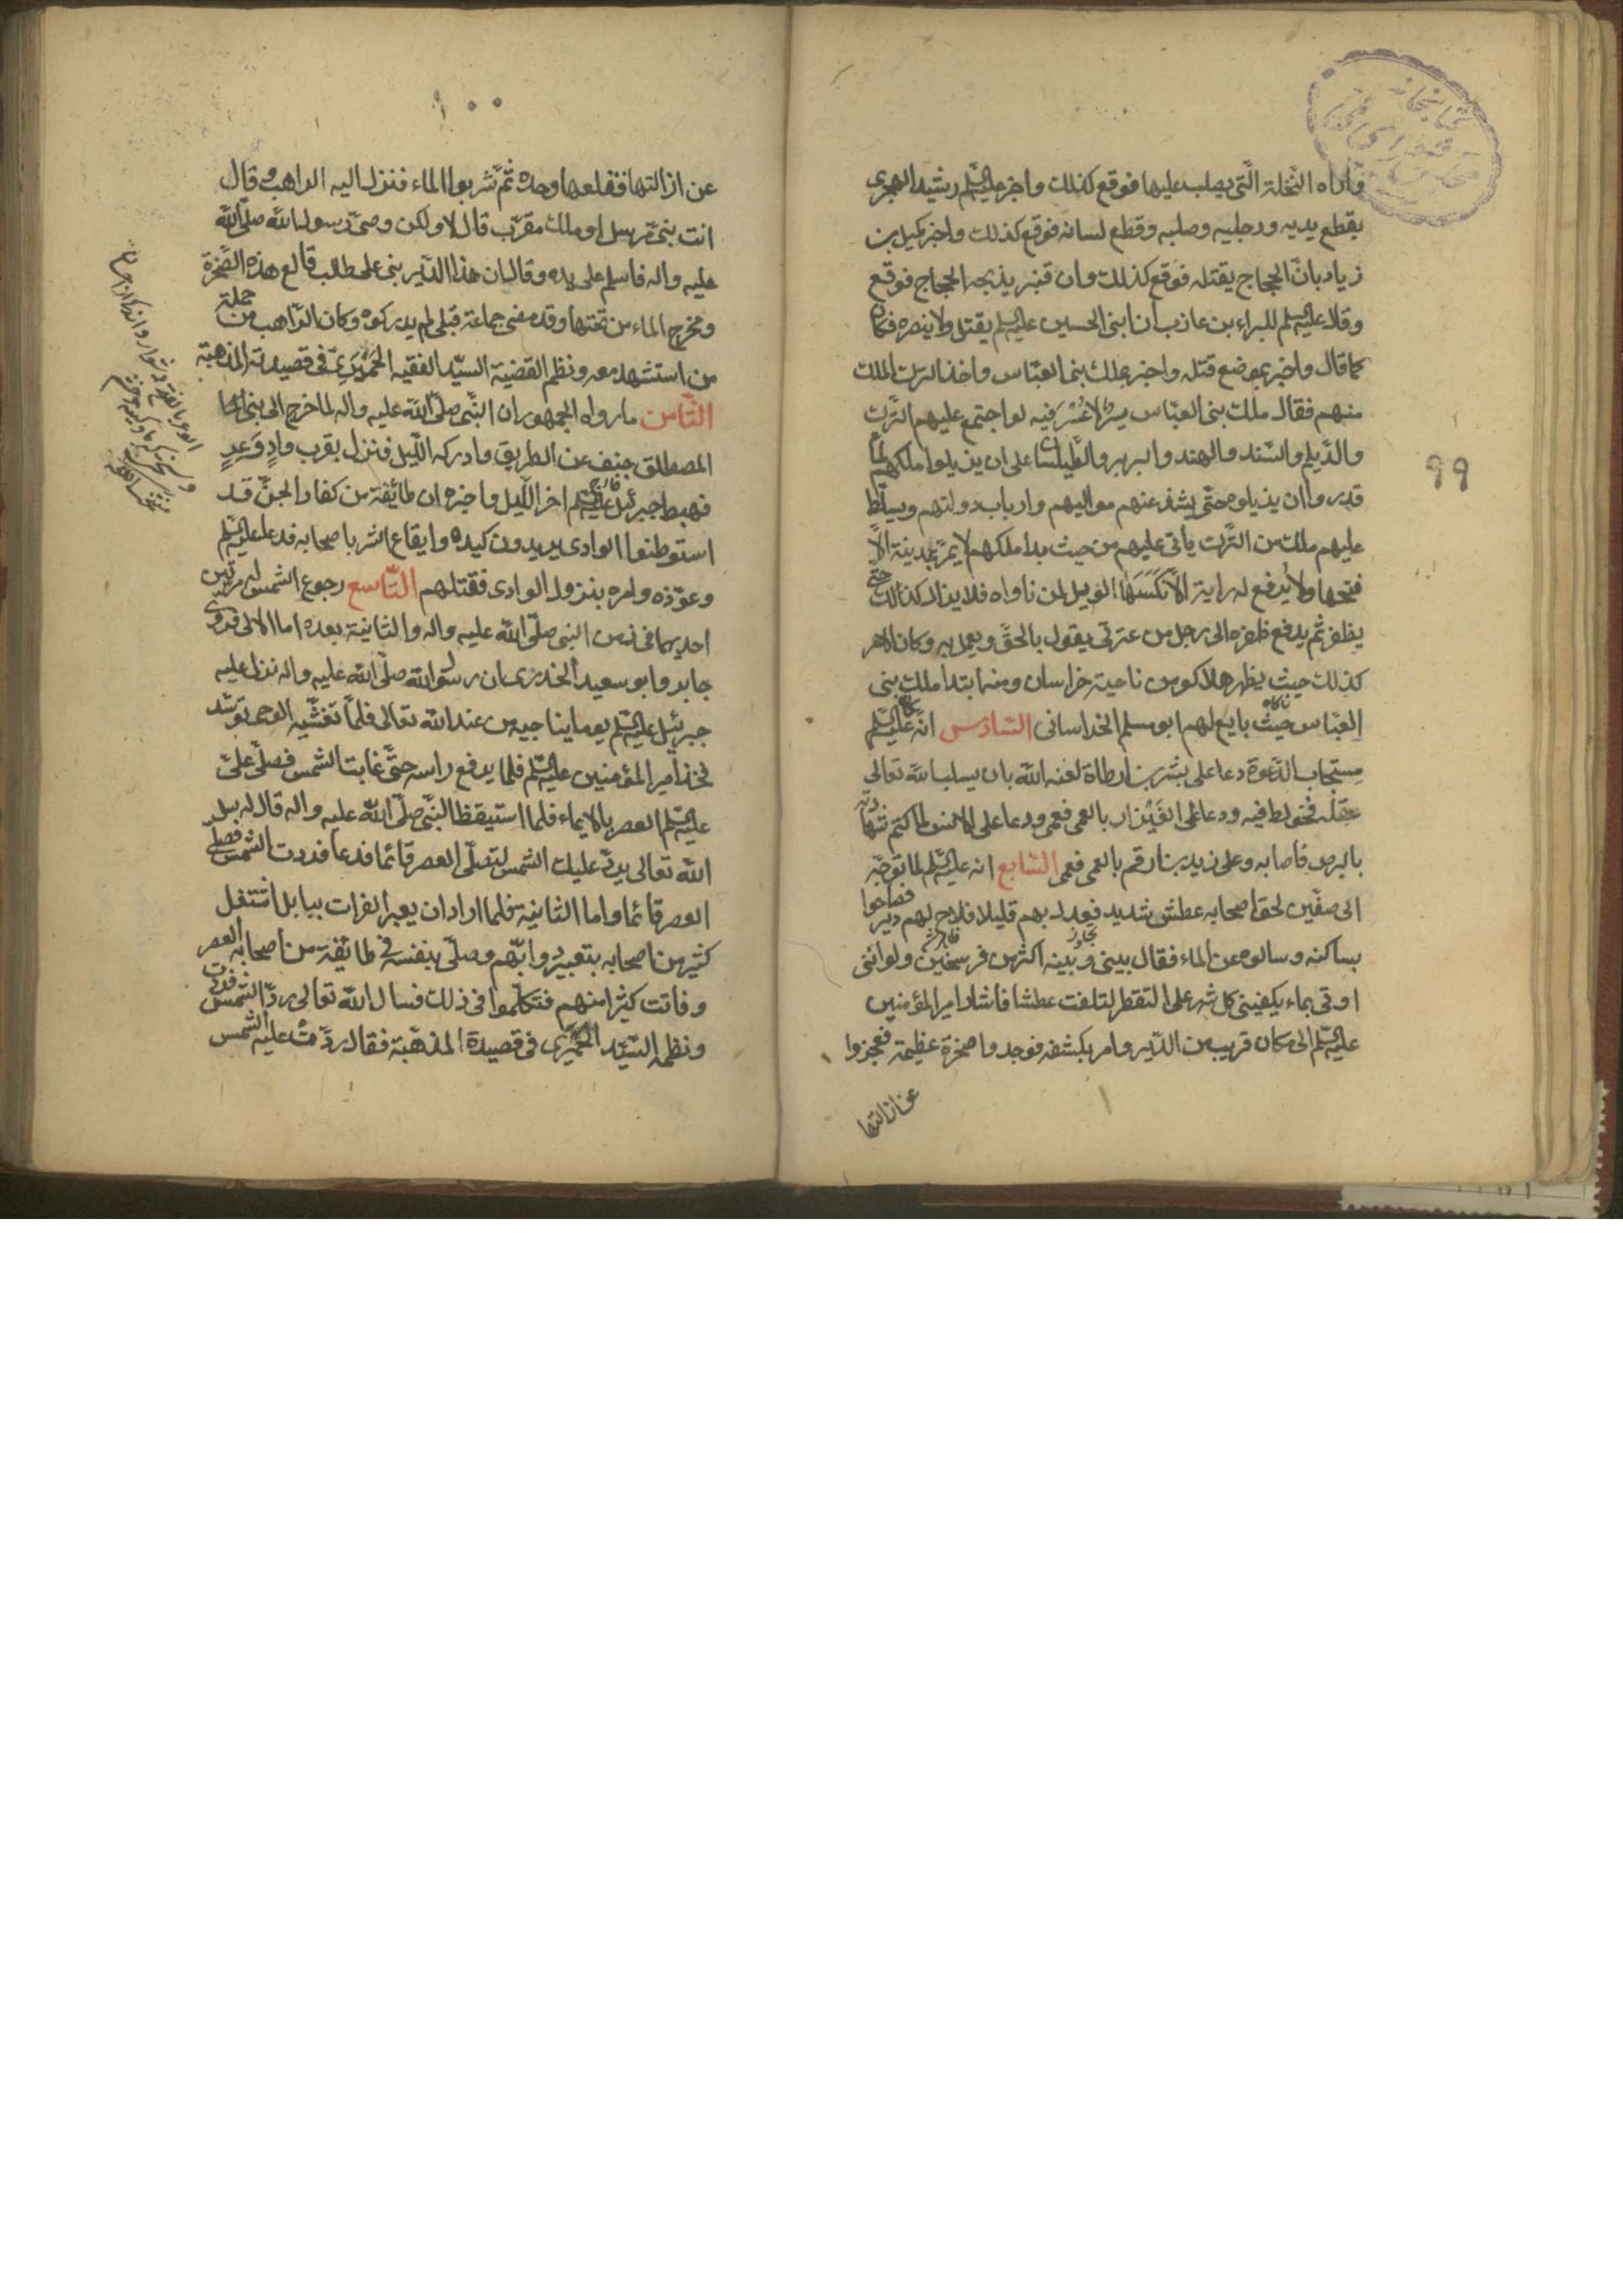 واراه النخلة الّتى يصلب عليها فوقع كذلك واخبر عليه السّلم رشيد الهجرى
بقطع يديه ورجليه وصلبه وقطع لسانه فوقع كذلك واخبر كميل بن
زياد بانّ الحجاج يقتله فوقع كذلك وان قنبر يذبحه الحجاج فوقع
وقال عليه السّلم للبراء بن عازب ان ابنى الحسين عليه السّلم يقتل ولا ينصره فكان
كما قال واخبر بموضع قتله واخبر بملك بنى العبّاس واخذ الترك الملك
منهم فقال ملك بنى العبّاس يسر لا عُسْرَ فيه لو اجتمع عليهم التّرك
والدّيلم والسّند والهند والبربر والطّيلسان على ان يزيلوا ملكهم لما
قدروا ان يزيلوه حتّى يشذ عنهم مواليهم وارباب دولتهم ويسلّط
عليهم ملك من التّرك ياتى عليهم من حيث بدا ملكهم لا يمرّ بمدينة الّا
فتحها ولا يُدفع له راية الّا نَكَسَهَا الويل لمن ناواه فلا يزال كذلك حتّى
يظفر ثم يدفع ظفره الى رجل من عترتى يقول بالحقّ ويعمل به وكان الامر
كذلك حيث ظهر هلاكو من ناحية خراسان ومنه ابتدا ملك بنى
العبّاس حيث بايع لهم ابو مسلم الخراسانى السّادس انّه عليه السّلم كان
مستجاب الدّعوة دعا على بشر بن ارطاة لعنه الله بان يسلب الله تعالى
عقله فخولط فيه ودعا على العَيْزار بالعمى فعمى ودعا على انس لما كتم شهادته
بالبرص فاصابه وعلى زيد بن ارقم بالعمى فعمى السّابع انه عليه السّلم لما توجّه
الى صفّين لحق اصحابه عطش شديد فعدل بهم قليلا فلاح لهم دير فصاحوا
بساكنه وسالوه عن الماء فقال بينى وبينه اكثر من فرسخين ولو اننى
اوتى بماء يكفينى كل شهر على التقطر لتلفت عطشا فاشار امير المؤمنين
عليه السّلم الى مكان قريب من الدّير وامر بكشفه فوجدوا صخرة عظيمة فعجزوا
عن ازالتها
٩٩
١٠٠
عن ازالتها فقلعها وحده ثم شربوا الماء فنزل اليه الراهب وقال
انت نبىّ مرسل او ملك مقرّب قال لا ولكن وصىّ رسول الله صلّى الله
عليه واله فاسلم على يده وقال ان هذا الدّير بنى على طلب قالع هذه الصّخرة
ومخرج الماء من تحتها وقد مضى جماعة قبلى لم يدركوه وكان الرّاهب من جملة
من استشهد معه ونظم القضية السيّد الفقيه الحِمْيَرِىّ فى قصيدته المذهبّة
الثّامن ما رواه الجمهور ان النّبى صلّى الله عليه واله لما خرج الى بنى
المصطلق جنف عن الطريق وادركه اللّيل فنزل بقرب وادٍ وَعِرٍ
فهبط جبرئيل عليه السّلم اخر اللّيل واخبره ان طائفة من كفار الجنّ قد
استوطنوا الوادى يريدون كيده وايقاع الشر باصحابه فدعا عليّا عليه السّلم
وعوّذه وامره بنزول الوادى فقتلهم التّاسع رجوع الشمس له مرّتين
احديهما فى زمن النبى صلّى الله عليه واله والثانية بعده اما الاولى فروى
جابر وابو سعيد الخدرى ان رسول الله صلّى الله عليه واله نزل عليه
جبرئيل عليه السّلم يوما يناجيه من عند الله تعالى فلمّا تغشّيه الوحى توسّد
فخذ امير المؤمنين عليه السّلم فلم يرفع راسه حتّى غابت الشمس فصلّى علىّ
عليه السّلم العصر بالايماء فلما استيقظ النّبى صلّى الله عليه واله قال له سل
الله تعالى يردّ عليك الشمس لتصلّى العصر قائما فدعا فردت الشمس فصلّى
العصر قائما واما الثانية فلما اراد ان يعبر الفرات ببابل اشتغل
كثير من اصحابه بتعبير دوابّهم وصلّى بنفسه فى طائفة من اصحابه العصر
وفاتت كثيرا منهم فتكلّموا فى ذلك فسال الله تعالى ردّ الشمس فردت
ونظمه السيّد الحميرى فى قصيدة المذهّبة فقال ردّت عليه الشمس